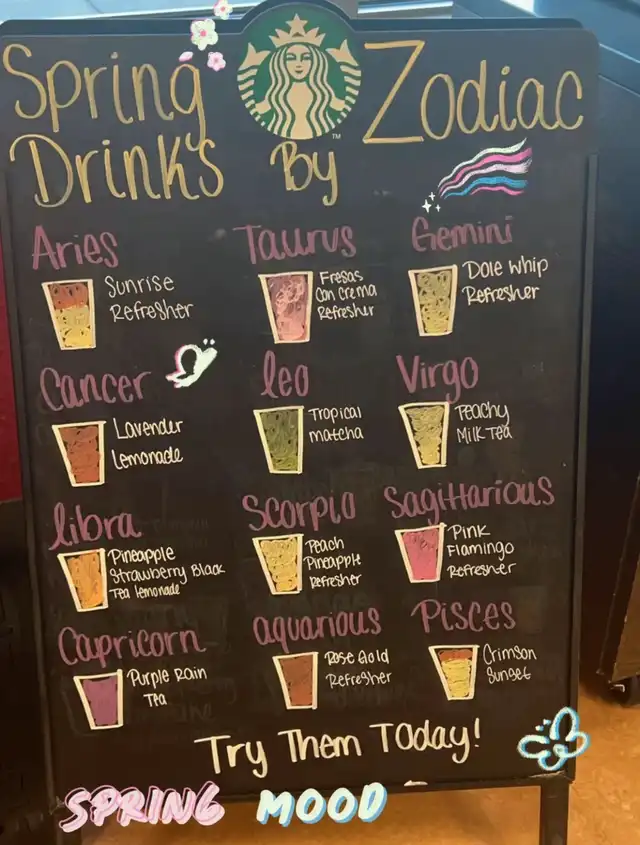 Spring Zodiac
Drinks By
Aries
Sunrise
Refresher
Taurus
Fresas
Con Crema
Refresher
Gemini
Dole Whip
Refresher
Cancer
Lavender
Lemonade
leo
Tropical
matcha
Virgo
Peachy
Milk Tea
libra
Pineapple
Strawberry Black
Tea lemonade
Scorpio
Peach
Pineapple
Refresher
Sagittarious
Pink
Flamingo
Refresher
Capricorn
Purple Rain
Tea
aquarious
Rose Gold
Refresher
Pisces
Crimson
Sunset
Try Them Today!
SPRING MOOD